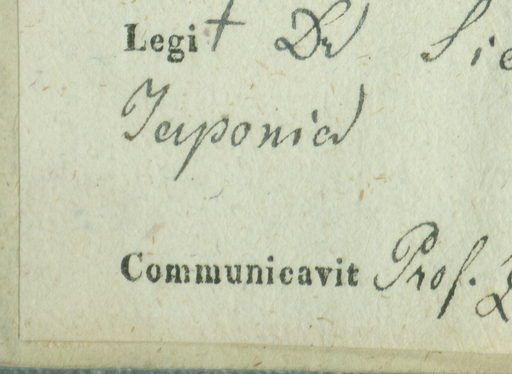 Legit Dr Sie
Japonia
Communicavit Prof.